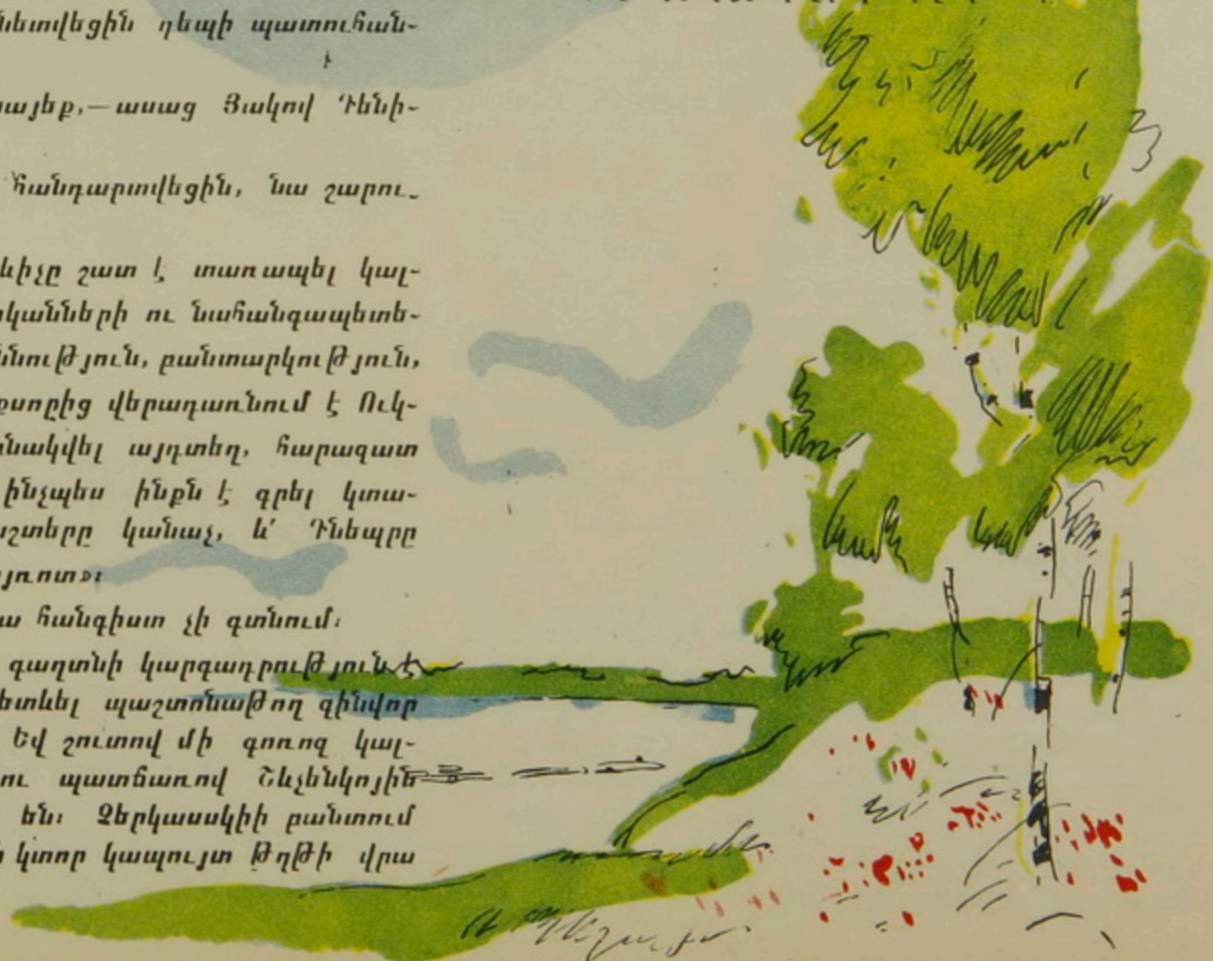 նետվեցին դեպի պատուհան-
այեք,—ասաց Յակով Դենի-
հանդարտվեցին, նա շարու-
ևիչը շատ է տառապել կալ-
կանների ու նահանգապետե-
նություն, բանտարկություն,
քսորից վերադառնում է Ուկ-
նակվել այդտեղ, հարազատ
ինչպես ինքն է գրել կտա-
շտերը կանաչ, և՛ Դնեպրը
յոոտ»։
ա հանգիստ չի գտնում։
գաղտնի կարգադրություն է
ետևել պաշտոնաթող զինվոր
Եվ շուտով մի գոռոզ կալ-
ու պատճառով Շևչենկոյին
են։ Չերկասսկիի բանտում
կտոր կապույտ թղթի վրա